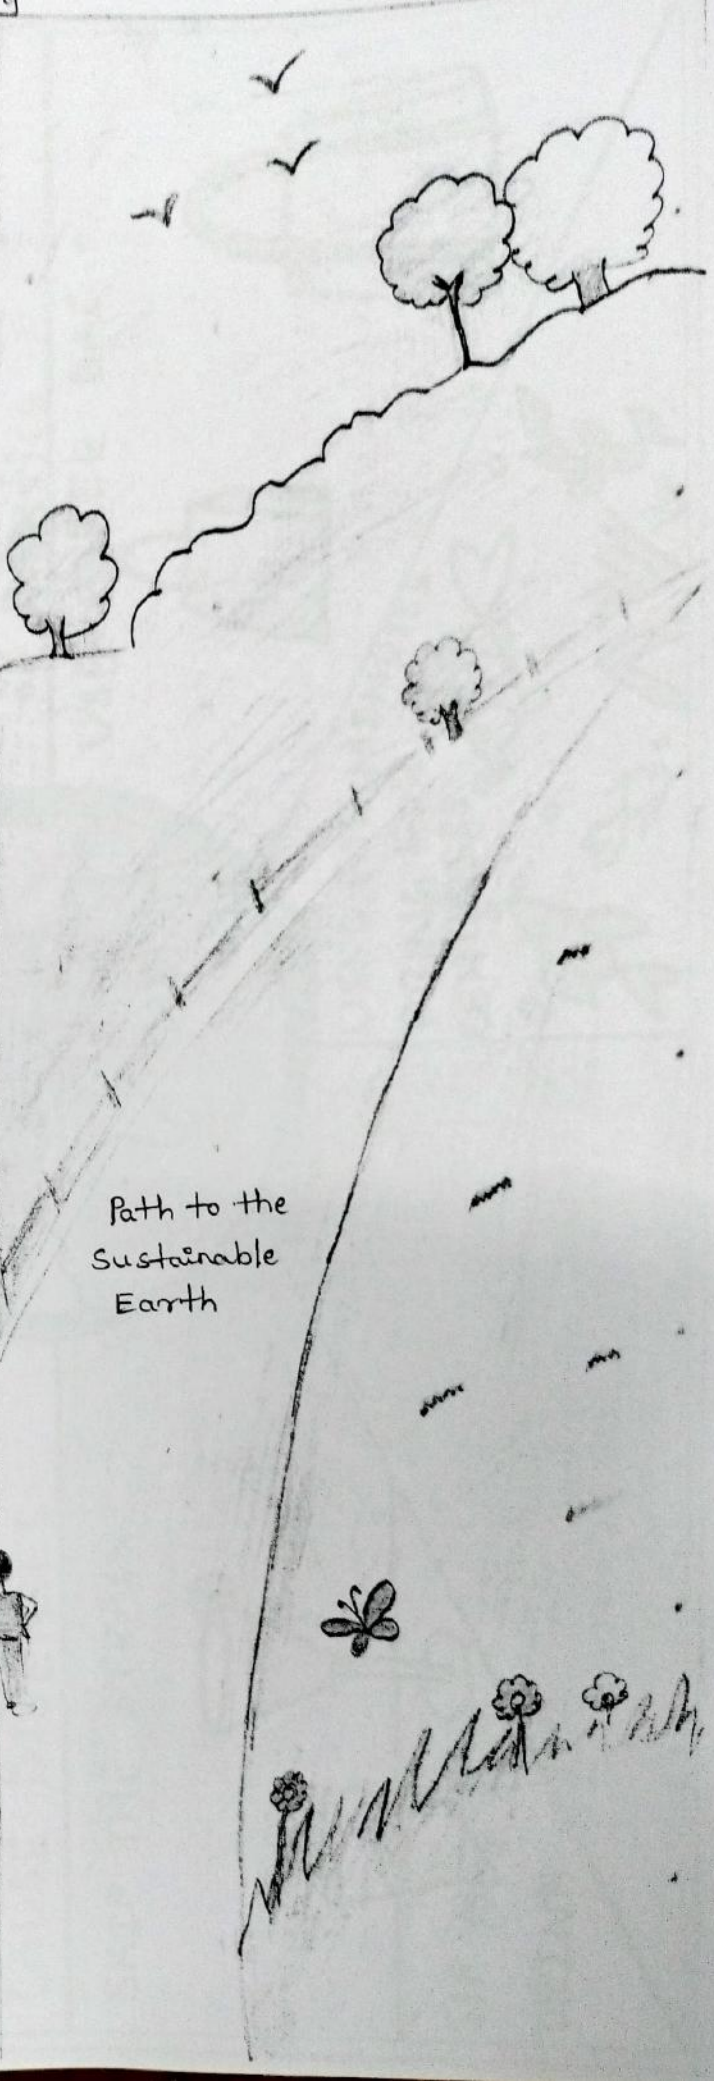 Path to the
Sustainable
Earth